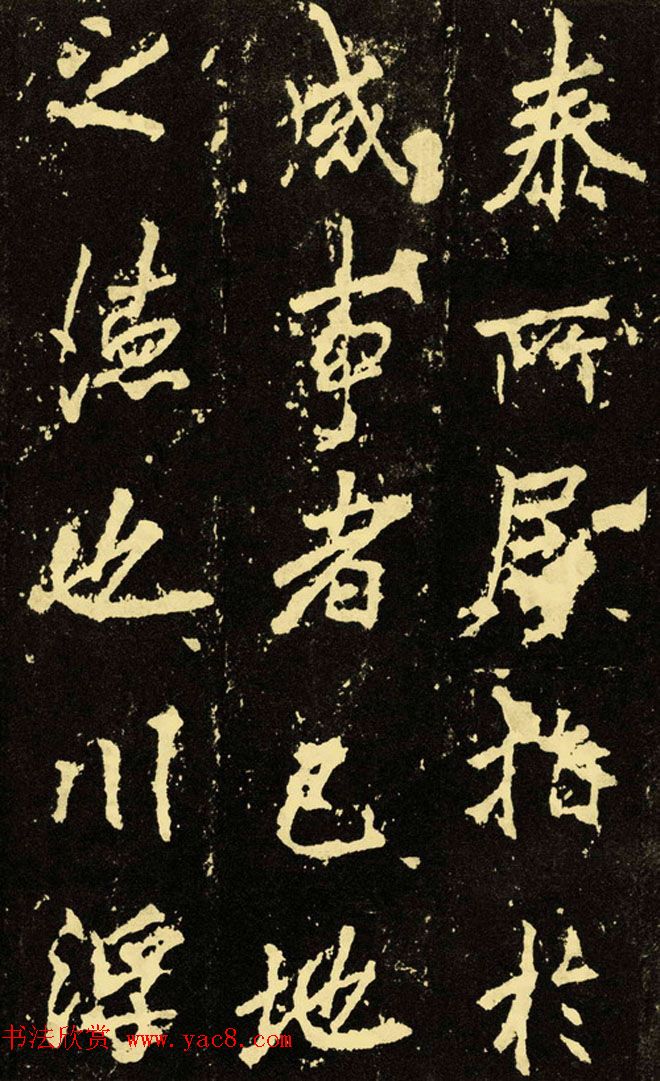 泰所居指於
成事者已地
之德也川浮
书法欣赏 www.yac8.com